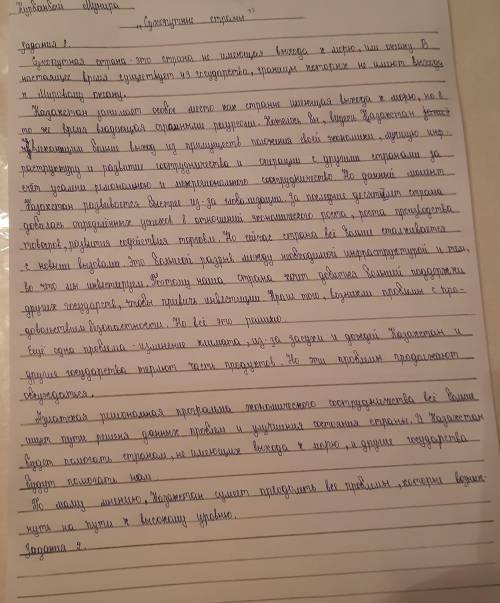 Курбанбай Мунира
"Сухопутные страны"
Задания 1.
Сухопутная страна - это страна не имеющая выхода к морю, или океану. В
настоящее время существует из государства, границы которых не имеют выхода
к Мировому океану.
Казахстан занимает особое место как страна имеющая выхода к морю, но в
то же время владеющая странными ресурсами. Хотелось бы, видеть Казахстан
извлекающим больше выход из преимуществ положения своей экономики, лучшую инф-
раструктуру и развитие сотрудничества и операции с другими странами за
счёт усилий регионального и межрегионального сотрудничество. На данный момент
Казахстан развивается быстрее из-за глобализации. За последние десять лет страна
добилась определённых успехов в отношений экономического роста, роста производства
товаров, развития содействия торговли. Но сейчас страна всё больше сталкивается
с новыми вызовами. Это большой разрыв между необходимой инфраструктурой и тем,
во что мы инвестируем. Поэтому наша страна хочет добиться большей поддержки
других государств, чтобы привлечь инвестиции. Кроме того, возникли проблемы с про-
довольствием безопасности. Но всё это решимо.
Ещё одна проблема - изменение климата, из-за засухи и дождей Казахстан и
другие государства теряют часть продуктов. Но эти проблемы продолжают
обсуждаться.
Азиатская региональная программа экономического сотрудничества всё больше
ищет пути решения данных проблем и улучшения состояния страны. И Казахстан
будет помогать странам, не имеющих выхода к морю, и другие государства
будут помогать нам.
По моему мнению, Казахстан сумеет преодолеть все проблемы, которые возник-
нуть на пути к высокому уровню.
Задания 2.